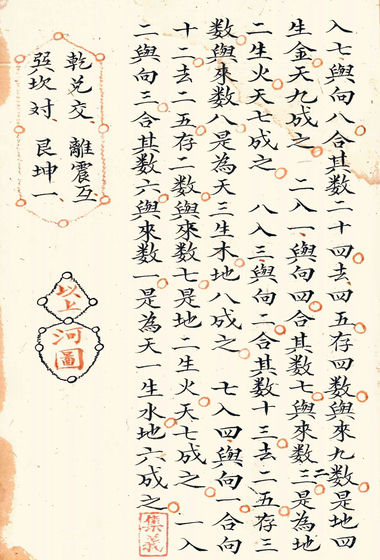 入七與向八合其数二十四去四五存四数與來九数是地四
生金天九成之　二入一與向四合其数七與來数二三是為地
二生火天七成之　八入三與向二合其数十三去二五存三
数與來数八是為天三生木地八成之　七入四與向一合向
十二去二五存二数與來数七是地二生火天七成之　一入
二與向三合其数六與來数一是為天一生水地六成之
集義
乾兑交　離震互
巽坎对　艮坤一
以上
河圖